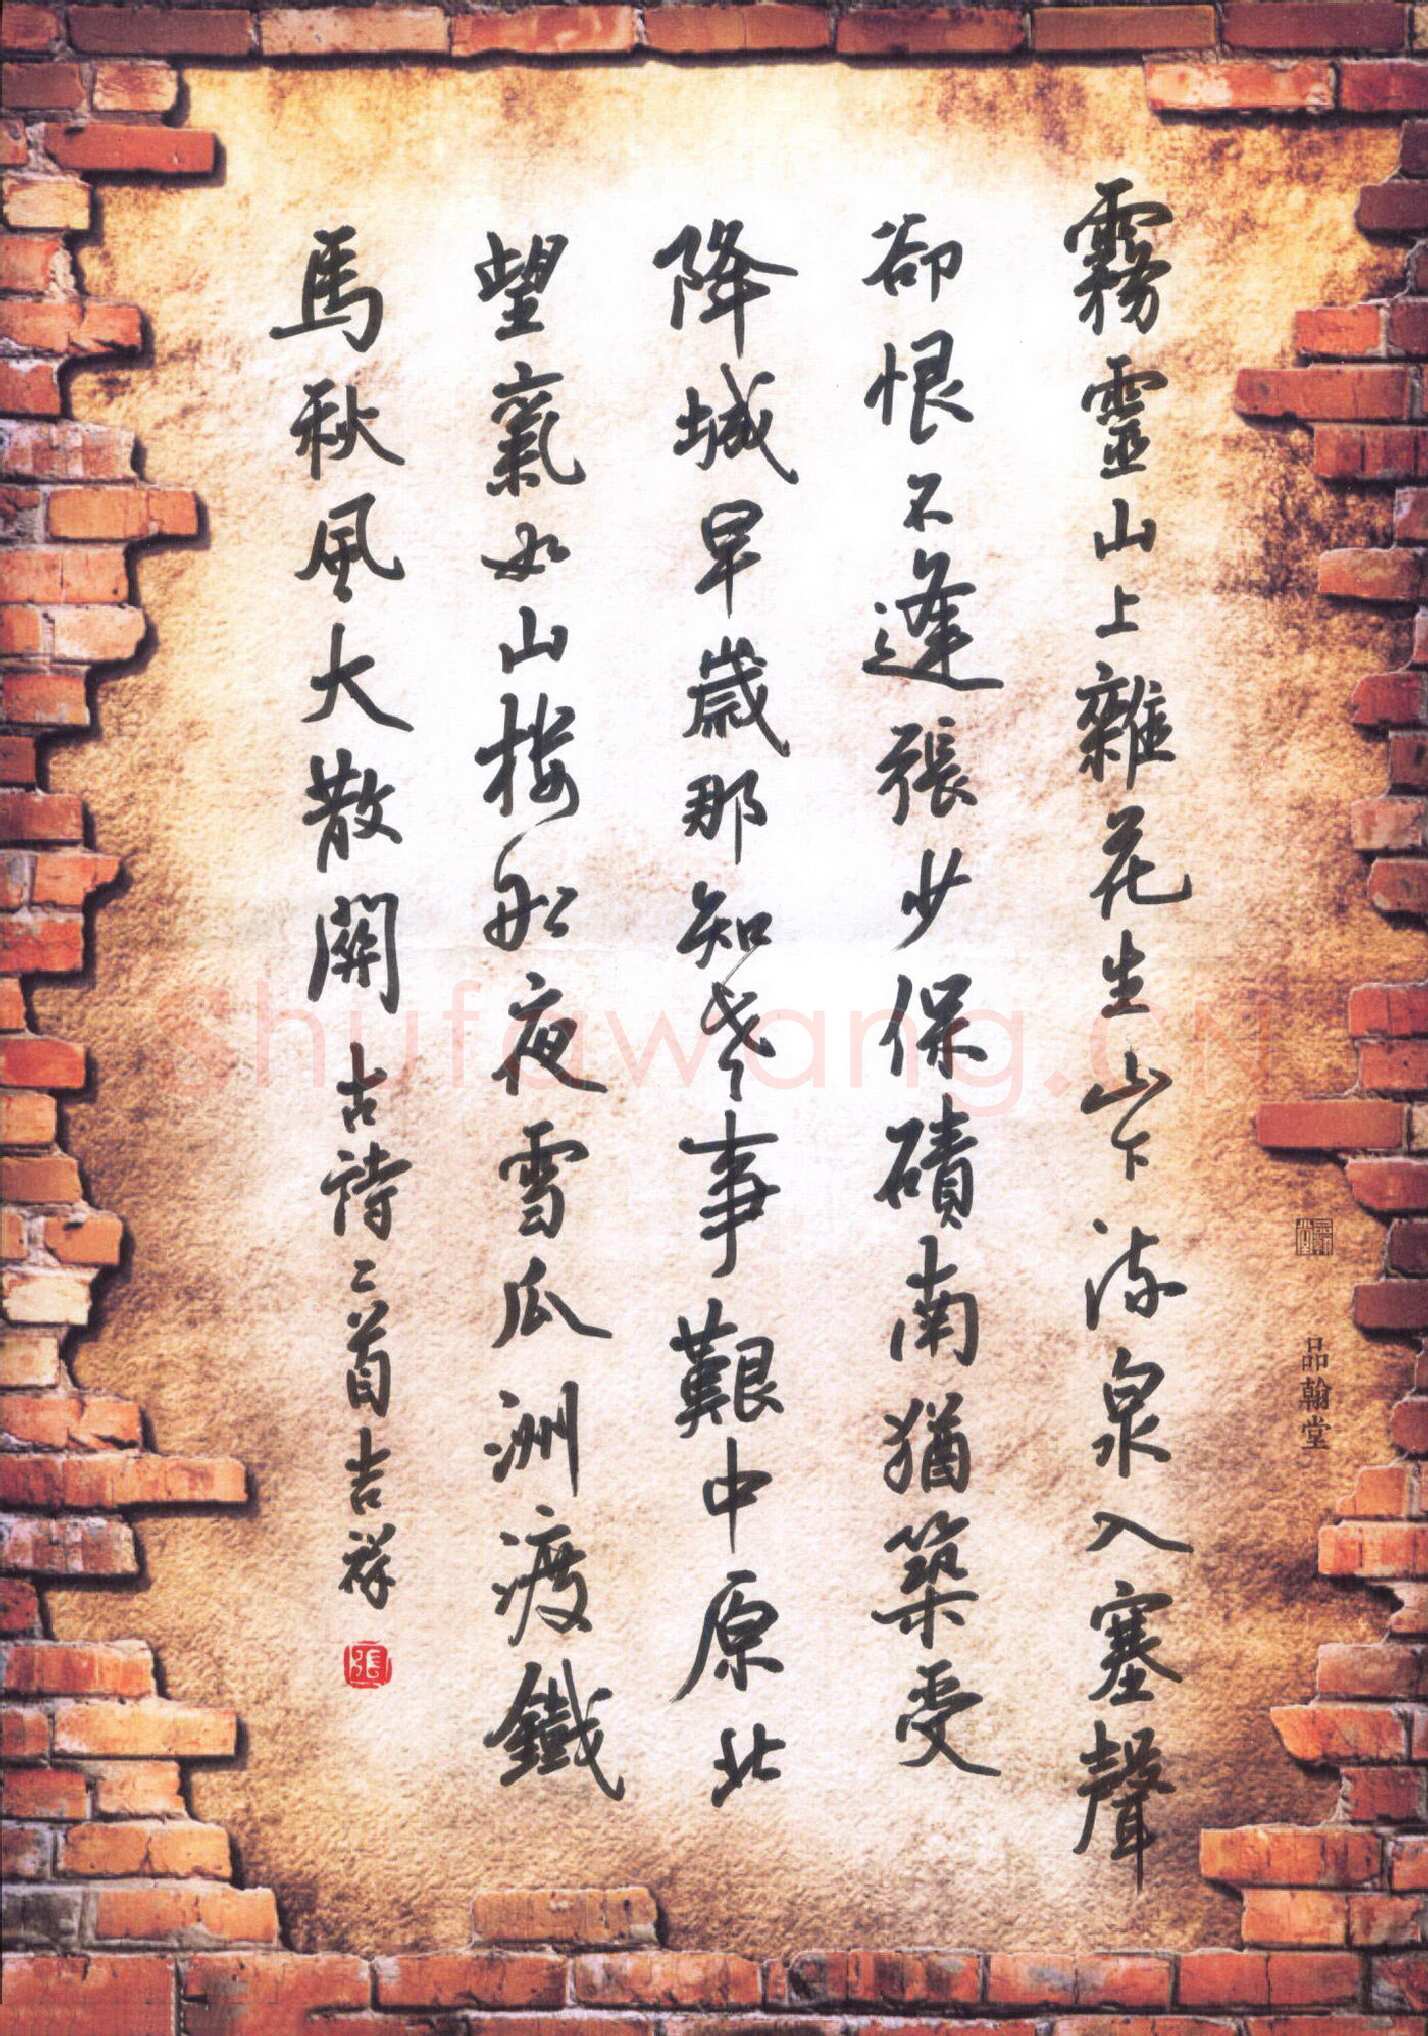 霧靈山上雜花生山下流泉入塞聲
卻恨不逢張少保磧南猶築受
降城早歲那知世事艱中原北
望氣如山樓船夜雪瓜洲渡鐵
馬秋風大散關
古詩二首吉祥
張
品翰堂
Shufawang.CN